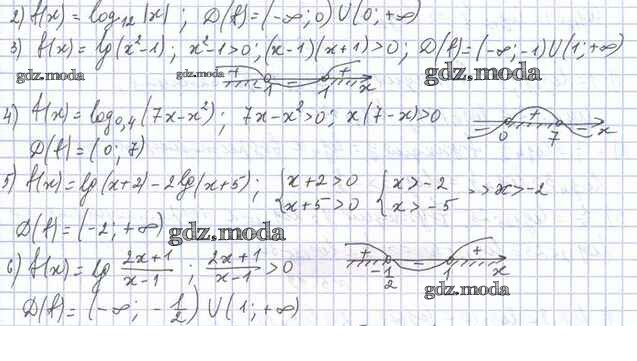 2) f(x) = log₁₂|x| ; D(f) = (-∞; 0) ∪ (0; +∞)
3) f(x) = lg(x²-1) ; x²-1>0 ; (x-1)(x+1)>0 ; D(f) = (-∞; -1) ∪ (1; +∞)
gdz.moda gdz.moda + - + -1 1 x gdz.moda
4) f(x) = log₀,₄(7x-x²) ; 7x-x²>0 ; x(7-x)>0 - + - 0 7 x
D(f) = (0; 7)
5) f(x) = lg(x+2) - 2lg(x+5) ; { x+2>0 { x>-2 => x>-2
x+5>0 x>-5
D(f) = (-2; +∞) gdz.moda
6) f(x) = lg (2x+1)/(x-1) ; (2x+1)/(x-1) > 0 + - + -1/2 1 x
gdz.moda
D(f) = (-∞; -1/2) ∪ (1; +∞)